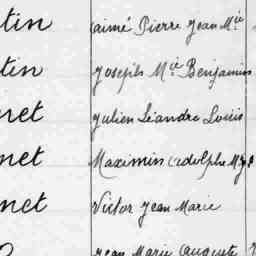 tin aimé Pierre Jean M.ie
tin Joseph M.ie Benjamin
net Julien Léandre Louis
net Maximin Adolphe
net Victor Jean Marie
Jean Marie Auguste